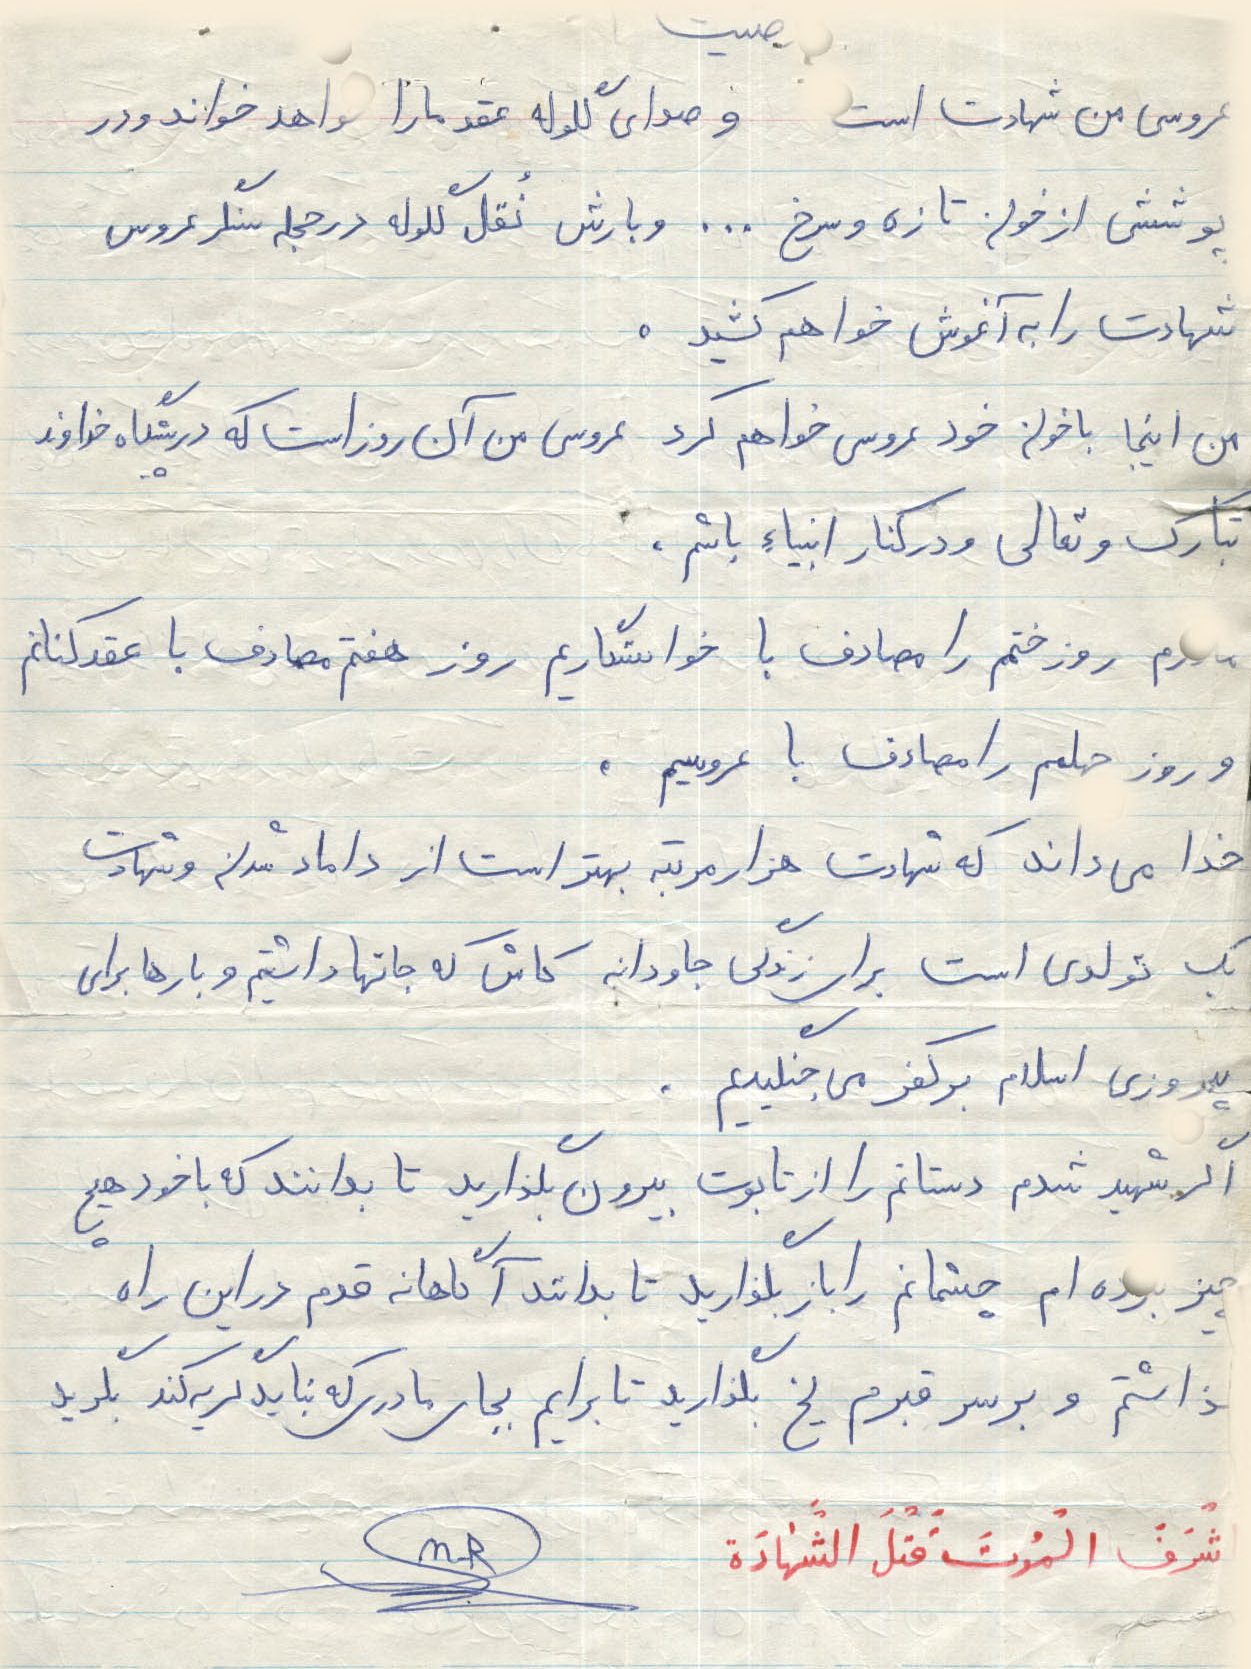 وصیت
عروسی من شهادت است و صدای گلوله عقد مارا خواهد خواند ودر
پوششی از خون تازه وسرخ ... وبارش نُقل گلوله درحجله سنگر عروس
شهادت را به آغوش خواهم کشید .
من اینجا باخون خود عروسی خواهم کرد عروسی من آن روز است که درپیشگاه خداوند
تبارک وتعالی ودرکنار انبیاء باشم .
مادرم روزختم را مصادف با خواستگاریم روز هفتم مصادف با عقدکنانم
و روز چهلم را مصادف با عروسیم .
خدا می داند که شهادت هزار مرتبه بهتر است از داماد شدن وشهادت
یک تولدی است برای زندگی جاودانه کاش که جانها داشتیم و بارها برای
پیروزی اسلام برکفر می جنگیدیم .
اگر شهید شدم دستانم را از تابوت بیرون بگذارید تا بدانند که باخود هیچ
چیز نبرده ام چشمانم را باز بگذارید تا بدانند آگاهانه قدم دراین راه
گذاشتم و برسر قبرم یخ بگذارید تا برایم بجای مادری که نباید گریه کند بگرید
اشْرَفَ الْمُوتَ قَتْلَ الشَّهٰادَة
M.R